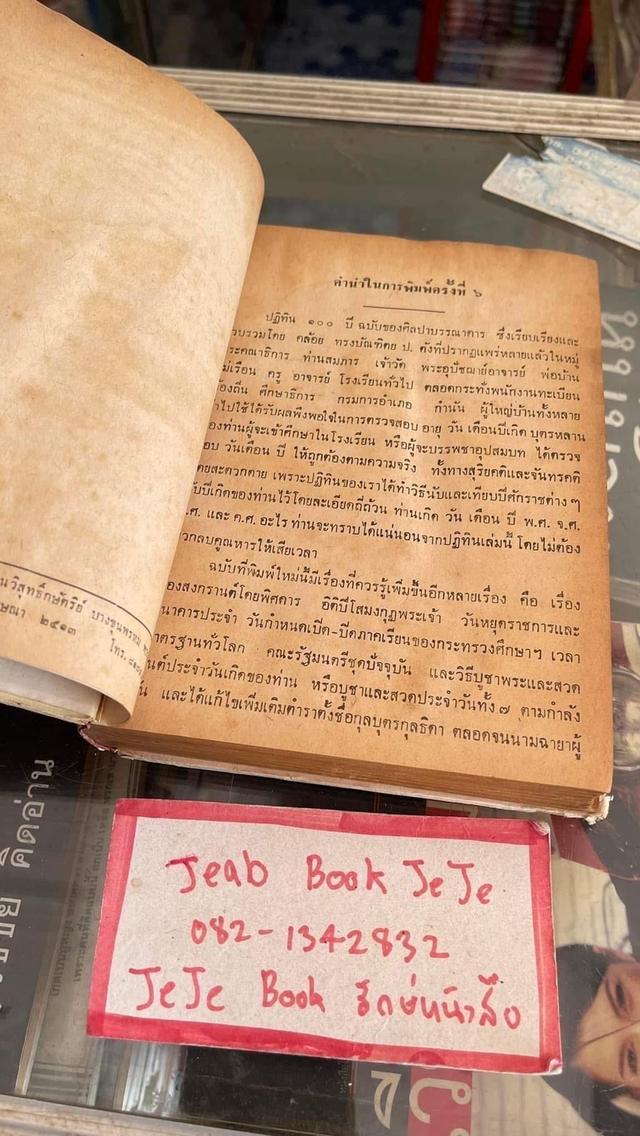 คำนำในการพิมพ์ครั้งที่ ๖
ปฏิทิน ๑๐๐ ปี ฉบับของศิลปาบรรณาคาร ซึ่งเรียบเรียงและ
โดย คล้อย ทรงบัณฑิตย ป. ดังที่ปรากฏแพร่หลายแล้วในหมู่
ท่านสมภาร เจ้าวัด พระอุปัชฌาย์อาจารย์ พ่อบ้าน
ครู อาจารย์ โรงเรียนทั่วไป ตลอดกระทั่งพนักงานทะเบียน
ศึกษาธิการ กรมการอำเภอ กำนัน ผู้ใหญ่บ้านทั้งหลาย
ไปใช้ได้รับผลพึงพอใจในการตรวจสอบ อายุ วัน เดือนปีเกิด บุตรหลาน
ท่านผู้จะเข้าศึกษาในโรงเรียน หรือผู้จะบรรพชาอุปสมบท ได้ตรวจ
วัน เดือน ปี ให้ถูกต้องตามความจริง ทั้งทางสุริยคติและจันทรคติ
สะดวกดาย เพราะปฏิทินของเราได้ทำวิธีนับและเทียบปีศักราชต่าง ๆ
ปีเกิดของท่านไว้โดยละเอียดถี่ถ้วน ท่านเกิด วัน เดือน ปี พ.ศ. จ.ศ.
และ ค.ศ. อะไร ท่านจะทราบได้แน่นอนจากปฏิทินเล่มนี้ โดยไม่ต้อง
ลบคูณหารให้เสียเวลา
ฉบับที่พิมพ์ใหม่นี้มีเรื่องที่ควรรู้เพิ่มขึ้นอีกหลายเรื่อง คือ เรื่อง
สงกรานต์โดยพิศดาร อิติปิโสมงกุฎพระเจ้า วันหยุดราชการและ
ธนาคารประจำ วันกำหนดเปิด-ปิดภาคเรียนของกระทรวงศึกษาฯ เวลา
มาตรฐานทั่วโลก คณะรัฐมนตรีชุดปัจจุบัน และวิธีบูชาพระและสวด
ประจำวันเกิดของท่าน หรือบูชาและสวดประจำวันทั้ง ๗ ตามกำลัง
และได้แก้ไขเพิ่มเติมตำราตั้งชื่อกุลบุตรกุลธิดา ตลอดจนนามฉายาผู้
วิสุทธิ์กษัตริย์ บางขุนพรหม
๒๕๑๓
โทร.
Jeab Book JeJe
082-1342832
JeJe Book รักษ์หนังสือ
คิดอ่าน